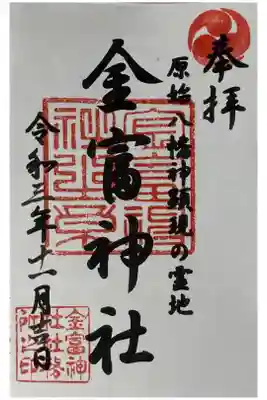 奉拝
原始八幡神顕現の霊地
金富神社
令和三年十一月吉日
金富神
社社務
所之印